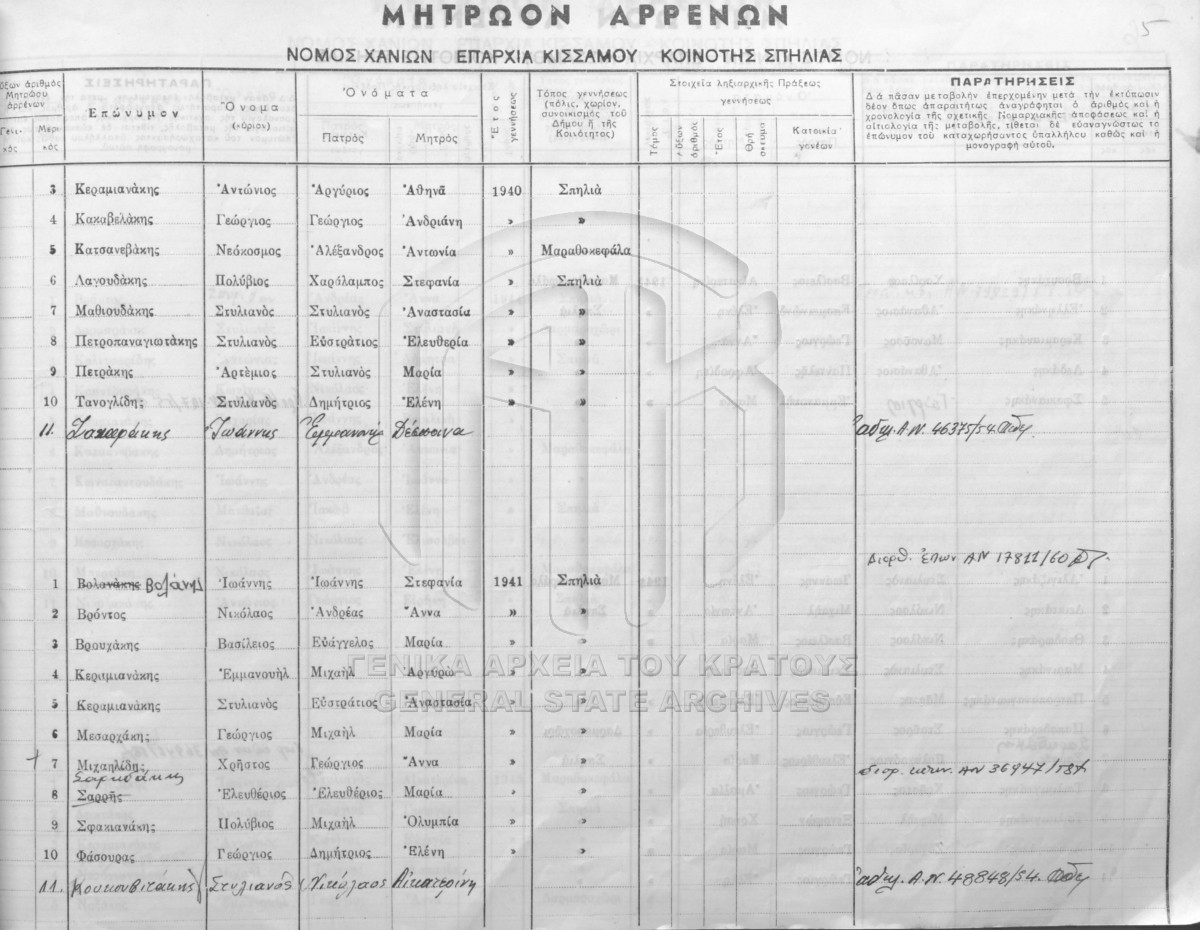 5
ΜΗΤΡΩΟΝ ΑΡΡΕΝΩΝ
ΝΟΜΟΣ ΧΑΝΙΩΝ ΕΠΑΡΧΙΑ ΚΙΣΣΑΜΟΥ ΚΟΙΝΟΤΗΣ ΣΠΗΛΙΑΣ
Αὔξων ἀριθμὸς Μητρώου ἀρρένων
Γενικὸς Μερικὸς
Ἐπώνυμον
Ὄνομα (κύριον)
Ὀνόματα
Πατρός Μητρός
Ἔτος γεννήσεως
Τόπος γεννήσεως (πόλις, χωρίον, συνοικισμὸς τοῦ Δήμου ἢ τῆς Κοινότητος)
Στοιχεῖα ληξιαρχικῆς Πράξεως γεννήσεως
Τόμος Αὔξων ἀριθμὸς Ἔτος Θρήσκευμα Κατοικία γονέων
ΠΑΡΑΤΗΡΗΣΕΙΣ
Διὰ πᾶσαν μεταβολὴν ἐπερχομένην μετὰ τὴν ἐκτύπωσιν
δέον ὅπως ἀπαραιτήτως ἀναγράφηται ὁ ἀριθμὸς καὶ ἡ
χρονολογία τῆς σχετικῆς Νομαρχιακῆς ἀποφάσεως καὶ ἡ
αἰτιολογία τῆς μεταβολῆς, τίθεται δὲ εὐαναγνώστως τὸ
ἐπώνυμον τοῦ καταχωρήσαντος ὑπαλλήλου καθὼς καὶ ἡ
μονογραφὴ αὐτοῦ.
3 Κεραμιανάκης Ἀντώνιος Ἀργύριος Ἀθηνᾶ 1940 Σπηλιὰ
4 Κακαβελάκης Γεώργιος Γεώργιος Ἀνδριάνη » »
5 Κατσανεβάκης Νεόκοσμος Ἀλέξανδρος Ἀντωνία » Μαραθοκεφάλα
6 Λαγουδάκης Πολύβιος Χαράλαμπος Στεφανία » Σπηλιὰ
7 Μαθιουδάκης Στυλιανὸς Στυλιανὸς Ἀναστασία » »
8 Πετροπαναγιωτάκης Στυλιανὸς Εὐστράτιος Ἐλευθερία » »
9 Πετράκης Ἀρτέμιος Στυλιανὸς Μαρία » »
10 Τανογλίδης Στυλιανὸς Δημήτριος Ἑλένη » »
11. Ζαχαράκης Ἰωάννης Ἐμμανουήλ Δέσποινα Α.Ν. 46375/54.
Διορθ. ἐπων ΑΝ 17822/60
1 Βολανάκης Βολάνης Ἰωάννης Ἰωάννης Στεφανία 1941 Σπηλιὰ
2 Βρόντος Νικόλαος Ἀνδρέας Ἄννα » »
3 Βρουχάκης Βασίλειος Εὐάγγελος Μαρία » »
4 Κεραμιανάκης Ἐμμανουὴλ Μιχαὴλ Ἀργυρὼ » »
ΓΕΝΙΚΑ ΑΡΧΕΙΑ ΤΟΥ ΚΡΑΤΟΥΣ
GENERAL STATE ARCHIVES
5 Κεραμιανάκης Στυλιανὸς Εὐστράτιος Ἀναστασία » »
6 Μεσαρχάκης Γεώργιος Μιχαὴλ Μαρία » »
7 Μιχαηλίδης Χρῆστος Γεώργιος Ἄννα » »
Σαριδάκης ΑΝ 36947/
8 Σαρρῆς Ἐλευθέριος Ἐλευθέριος Μαρία » »
9 Σφακιανάκης Πολύβιος Μιχαὴλ Ὀλυμπία » »
10 Φάσουρας Γεώργιος Δημήτριος Ἑλένη » »
11. Κουκουβιτάκης Στυλιανὸς Νικόλαος Αἰκατερίνη Α.Ν. 48848/54.